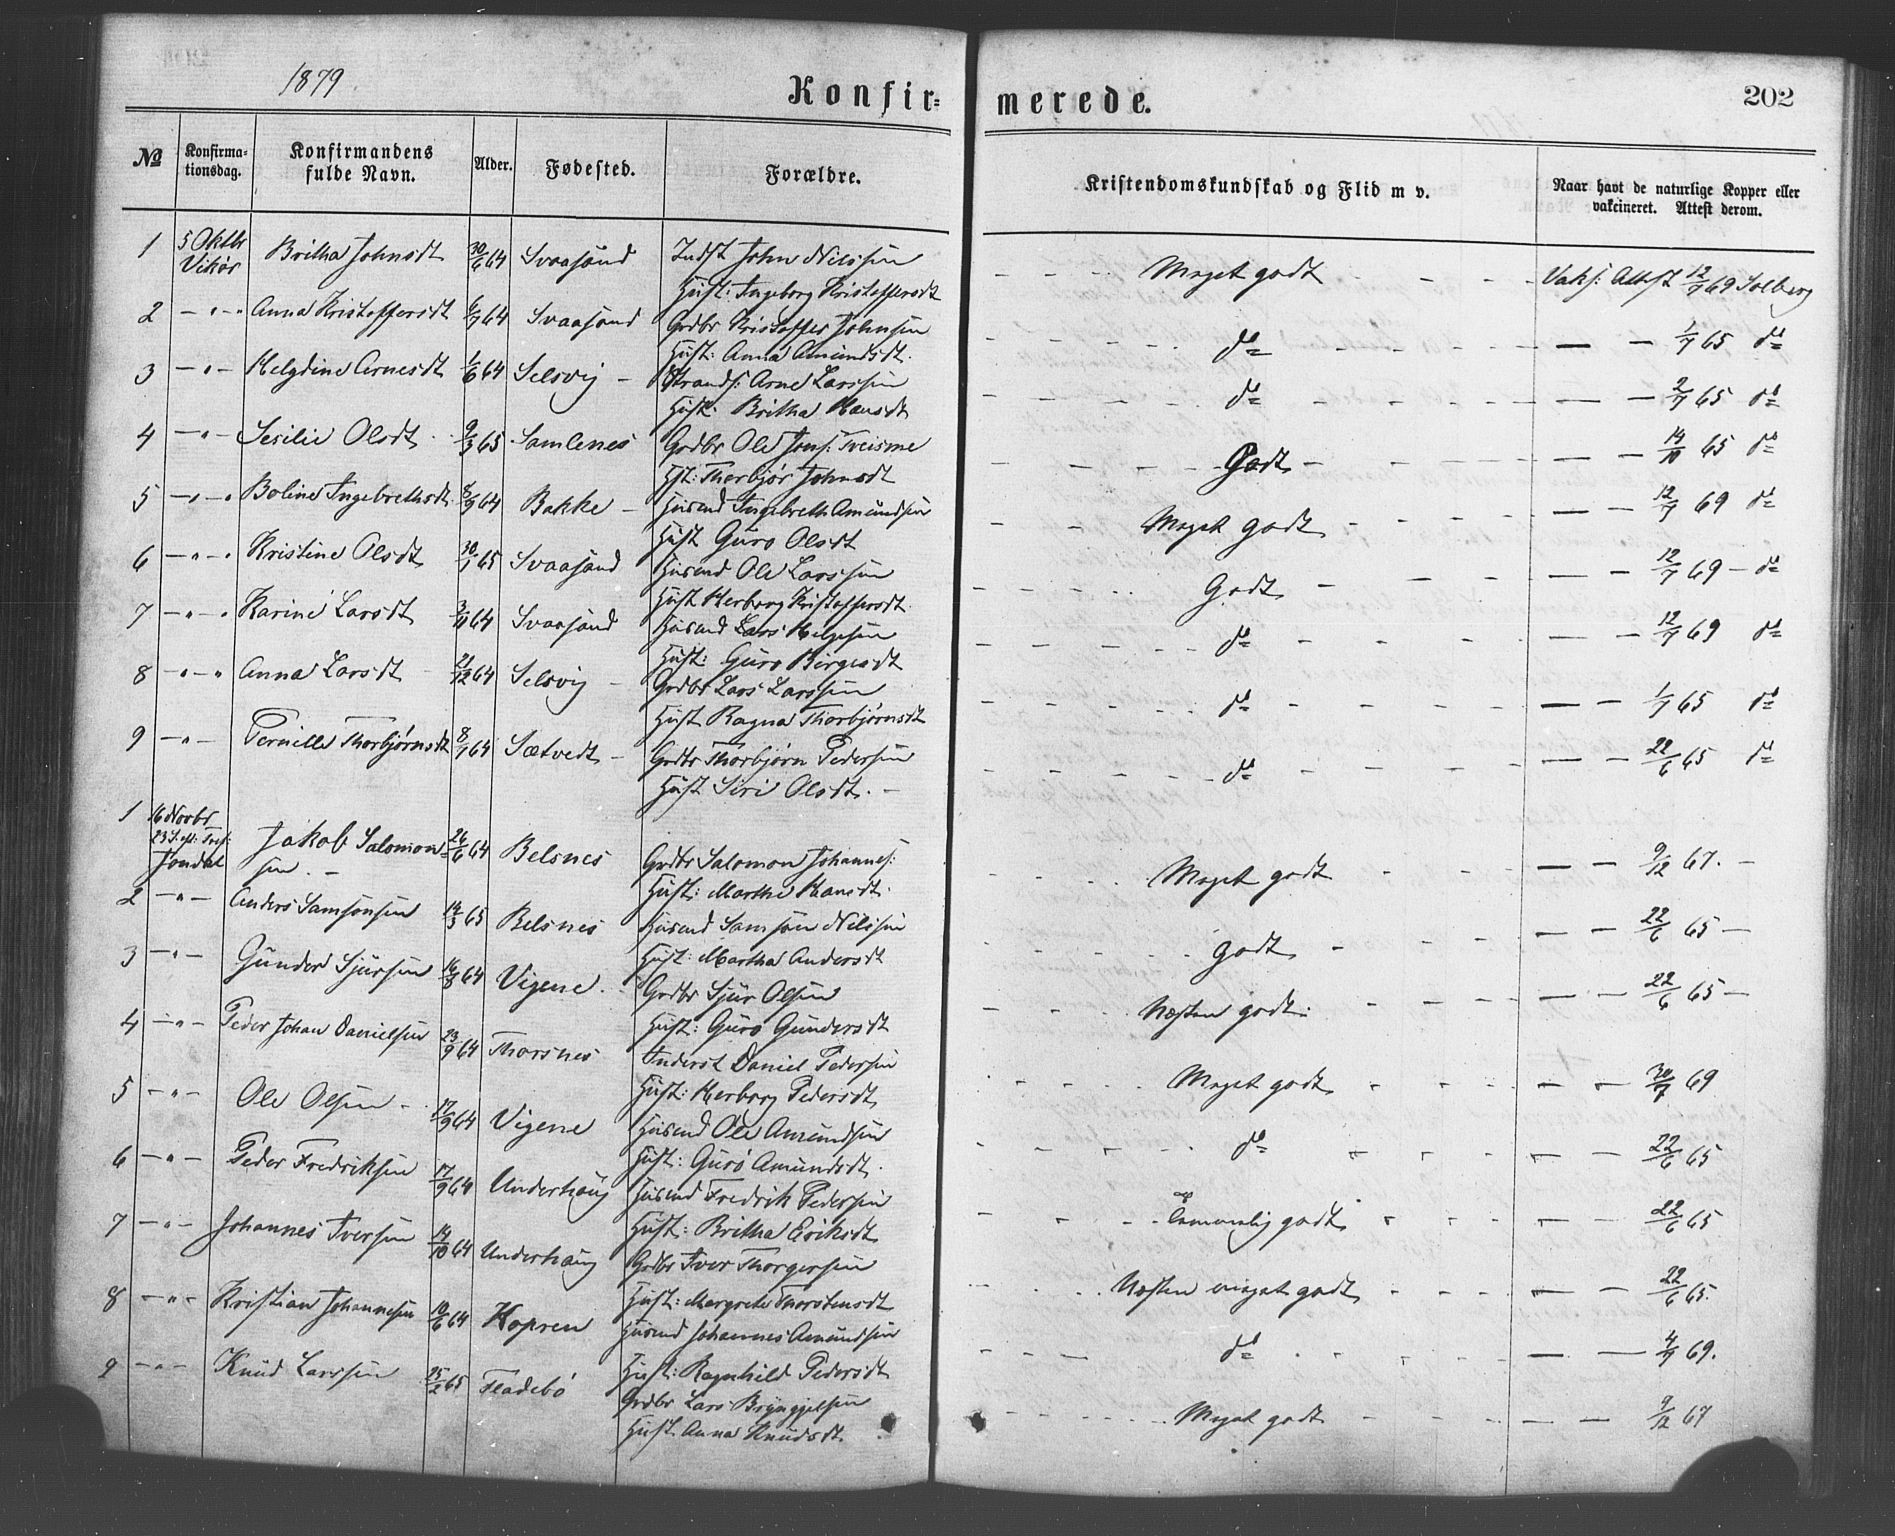 1879.
Konfir=
merede.
202
No
Konfirma-
tionsdag.
Konfirmandens
fulde Navn.
Alder.
Fødested.
Forældre.
Kristendomskundskab og Flid m v.
Naar havt de naturlige Kopper eller
vakcineret. Attest derom.
1 5 Oktbr Vikør Britha Johnsdt 30/6 64 Svaasand Indst John Nilssen - - - Meget godt - - - Vaks: Attest 12/7 69 Solberg
Hust: Ingeborg Kristoffersdt
2 - " - Anna Kristoffersdt 6/7 64 Svaasand Grdbr Kristoffer Johnsen do — - 1/7 65 do
Hust: Anna Amundsdt.
3 - " - Helgdine Arnesdt 1/6 64 Selsvig - Strands: Arne Larssen do — - 2/7 65 do
Hust: Britha Hansdt
4 - " - Sesilie Olsdt 9/3 65 Samlenes Grdbr Ole Jons: Tveisme Godt — - 14/10 65 do
Hst: Thorbjør Johnsdt
5 - " - Boline Ingebrethsdt 8/9 64 Bakke - Husmd Ingebreth Amundsen Meget godt — - 12/7 69 do
Hust Guro Olsdt
6 - " - Kristine Olsdt 30/1 65 Svaasand Husmd Ole Larssen Godt — - 12/7 69 - do
Hust Herborg Kristoffersdt.
7 - " - Karine Larsdt 3/11 64 Svaasand Husmd Lars Helgesen do — - 12/7 69 do
Hust: Guro Birgesdt
8 - " - Anna Larsdt - 21/12 64 Selsvig - Grdbr Lars Larssen do — - 1/7 65 do
Hust Ragna Thorbjørnsdt
9 - " - Pernille Thorbjørnsdt 8/1 64 Sætvedt - Grdbr Thorbjørn Pedersen do — - 22/6 65 do
Hust Siri Olsdt. -
1 16 Novbr
23 S. eft: Tref:
Jondal Jakob Salomon=
sen. - 26/6 64 Belsnes Grdbr Salomon Johannes: Meget godt — - 9/12 67. -
Hust: Marthe Hansdt.
2 - " - Anders Samsonsen 14/3 65 Belsnes Husmd Samson Nilssen godt — - 22/6 65 -
Hust: Martha Andersdt
3 - " - Gunder Sjursen 16/8 64 Vigene. Grdbr Sjur Olsen Næsten godt. — - 22/6 65 -
Hust: Guro Gundersdt
4 - " - Peder Johan Danielsen 23/9 64 Thorsnes Inderst Daniel Pedersen Meget godt - - 30/7 69
Hust: Herborg Pedersdt
5 - " - Ole Olsen - 17/9 64 Vigene Husmd Ole Amundsen do - - 22/6 65
Hust: Guro Amundsdt.
6 - " - Peder Fredriksen 17/9 64 Underhaug Husmd Fredrik Pedersen Temmelig godt - - 22/6 65
Hust: Britha Eriksdt
7 - " - Johannes Iversen 14/10 64 Underhaug Grdbr Iver Thorgersen Næsten meget godt — - 22/6 65.
Hust: Margrete Thorstensdt
8 - " - Kristian Johannesen 10/6 64 Kopren Husmd Johannes Amundsen do — - 4/9 69.
Hust: Ragnhild Pedersdt
9 - " - Knud Larssen 25/2 65 Fladebø Grdbr Lars Bryngjelsen Meget godt - - 9/12 67
Hust Anna Knudsdt.